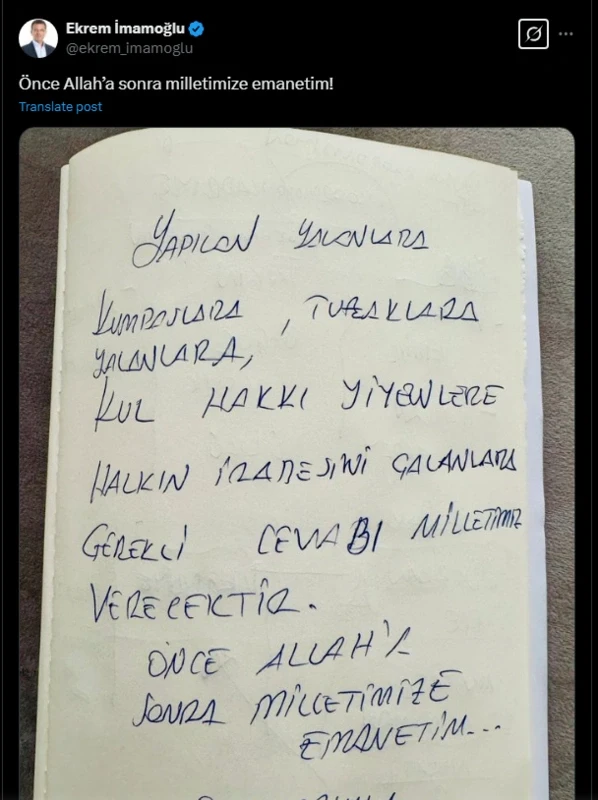 Ekrem İmamoğlu
@ekrem_imamoglu
Önce Allah'a sonra milletimize emanetim!
Translate post
YAPILAN YALANLARA
KUMPASLARA, TUZAKLARA
YALANLARA,
KUL HAKKI YİYENLERE
HALKIN İRADESİNİ ÇALANLARA
GEREKLİ CEVABI MİLLETİMİZ
VERECEKTİR.
ÖNCE ALLAH'A
SONRA MİLLETİMİZE
EMANETİM...